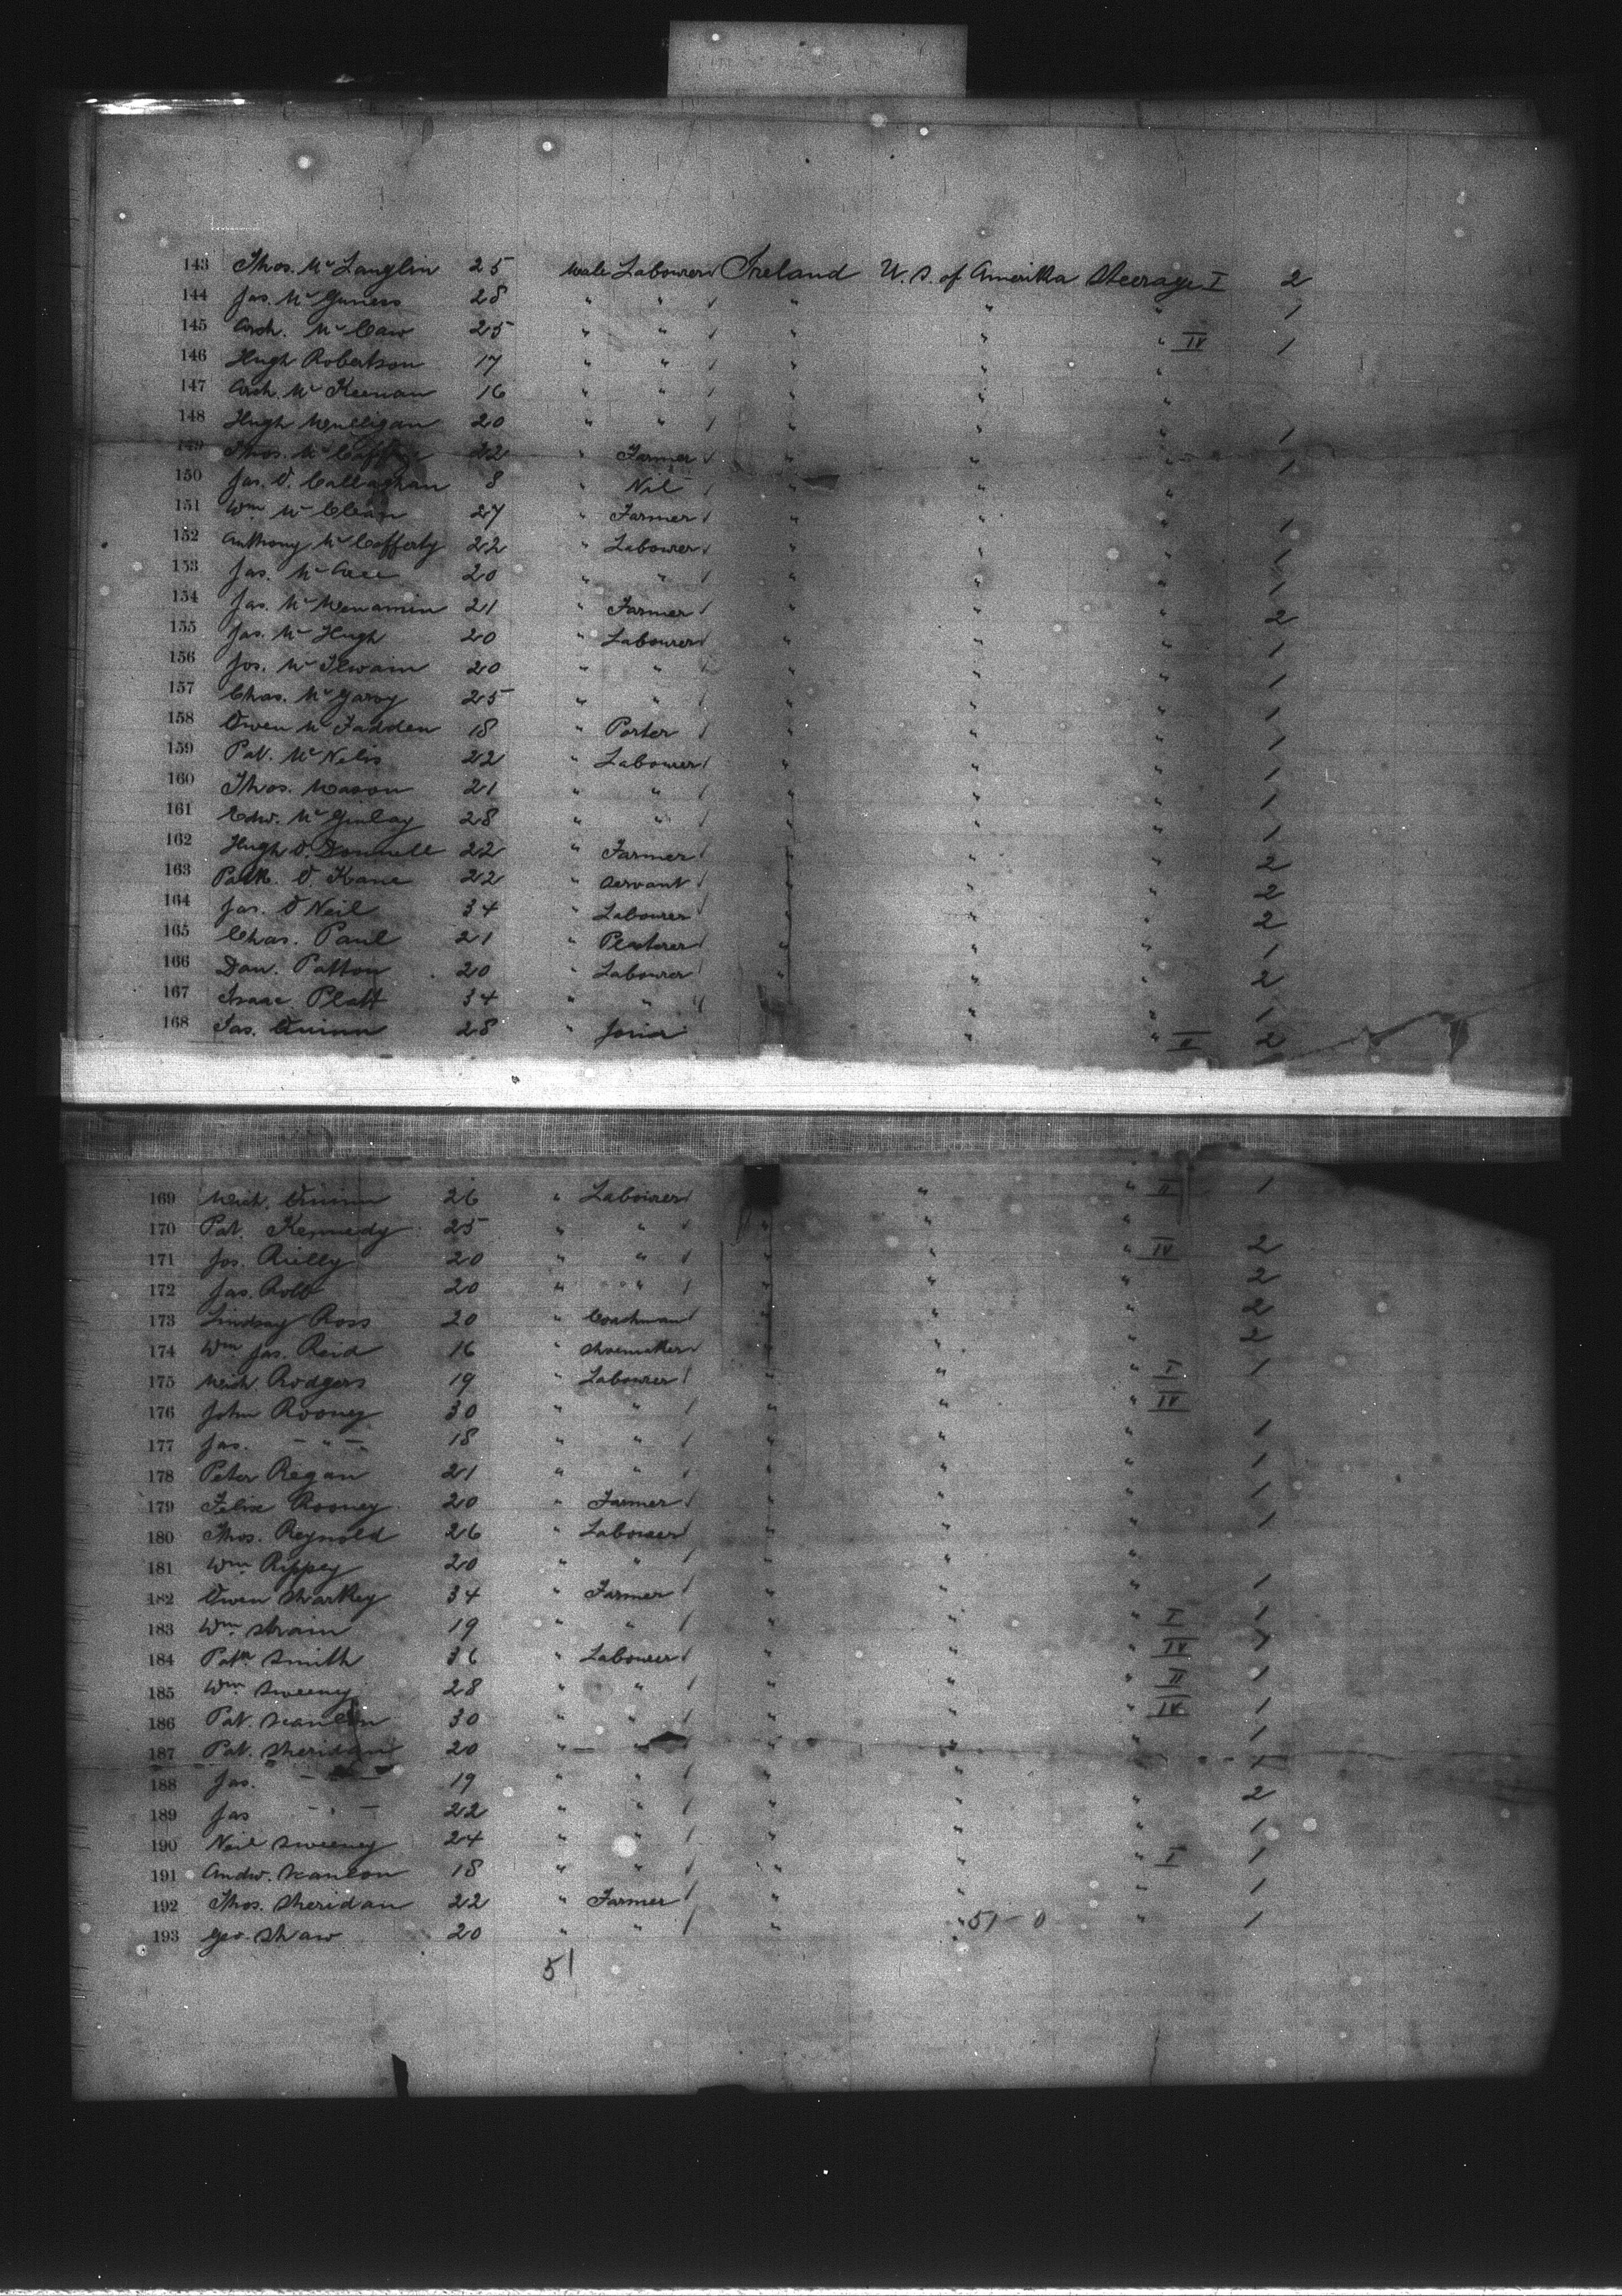 143 Thos. Mc Langlin 25 Male Labourer Ireland U. S. of Amerikka Steerage I 2
144 Jas. Mc Guness 28 " " " " " 1
145 Arch. Mc Caw 25 " " " " " IV 1
146 Hugh Robertson 17 " " " " "
147 Arch. Mc Keenan 16 " " " " "
148 Hugh Mulligan 20 " " " " " 1
149 Thos. Mc 22 " Farmer " " " 1
150 Jas. O. Callaghan 8 " Nil " " "
151 Wm Mc Clean 27 " Farmer " " " 1
152 Anthony Mc Cafferty 22 " Labourer " " 1
153 Jas. Mc 20 " " " " " 1
154 Jas. Mc Menamin 21 " Farmer " " 2
155 Jas. Mc Hugh 20 " Labourer " " " 1
156 Jos. Mc Ilwain 20 " " " " " 1
157 Chas. Mc Garvy 25 " " " " " 1
158 Owen Mc Fadden 18 " Porter " " " 1
159 Pat. Mc Nelis 22 " Labourer " " " 1
160 Thos. Mason 21 " " " " " 1
161 Edw. Mc Ginlay 28 " " " " " 1
162 Hugh O. Donnell 22 " Farmer " " " 2
163 Patk. O. Kane 22 " Servant " " " 2
164 Jas. O Neil 34 " Labourer " " " 2
165 Chas. Paul 21 " Plasterer " " " 1
166 Dan. Patton 20 " Labourer " " " 2
167 Isaac Platt 34 " " " " 1
168 Jas. Quinn 28 " " " II 2
169 Mich. Quinn 26 " Labourer " " II 1
170 Pat. Kennedy 25 " " " " "
171 Jos. Rielly 20 " " " " IV 2
172 Jas. Robb 20 " " " " " 2
173 Lindsay Ross 20 " Coachman " " " 2
174 Wm Jas. Reid 16 " Shoemaker " " " 2
175 Mich. Rodgers 19 " Labourer " " " I 1
176 John Rooney 30 " " " " " IV
177 Jas. – " – 18 " " " " " 1
178 Peter Regan 21 " " " " " 1
179 Felix Rooney 20 " Farmer " " " 1
180 Thos. Reynold 26 " Labourer " " " 1
181 Wm Rippey 20 " " " " "
182 Owen Sharkey 34 " Farmer " " " 1
183 Wm Strain 19 " " " " " I 1
184 Patk Smith 36 " Labourer " " " IV 1
185 Wm Sweeney 28 " " " " " II 1
186 Pat. Scanlon 30 " " " " " IV 1
187 Pat. Sheridan 20 " " " " " 1
188 Jas. – " – 19 " " " " 1
189 Jas – " – 22 " " " " " 2
190 Neil Sweeney 24 " " " " " 1
191 Andw. Scanlon 18 " " " " " I 1
192 Thos. Sheridan 22 " Farmer " " " 1
193 Geo. Shaw 20 " " " " 51 – 0 " 1
51